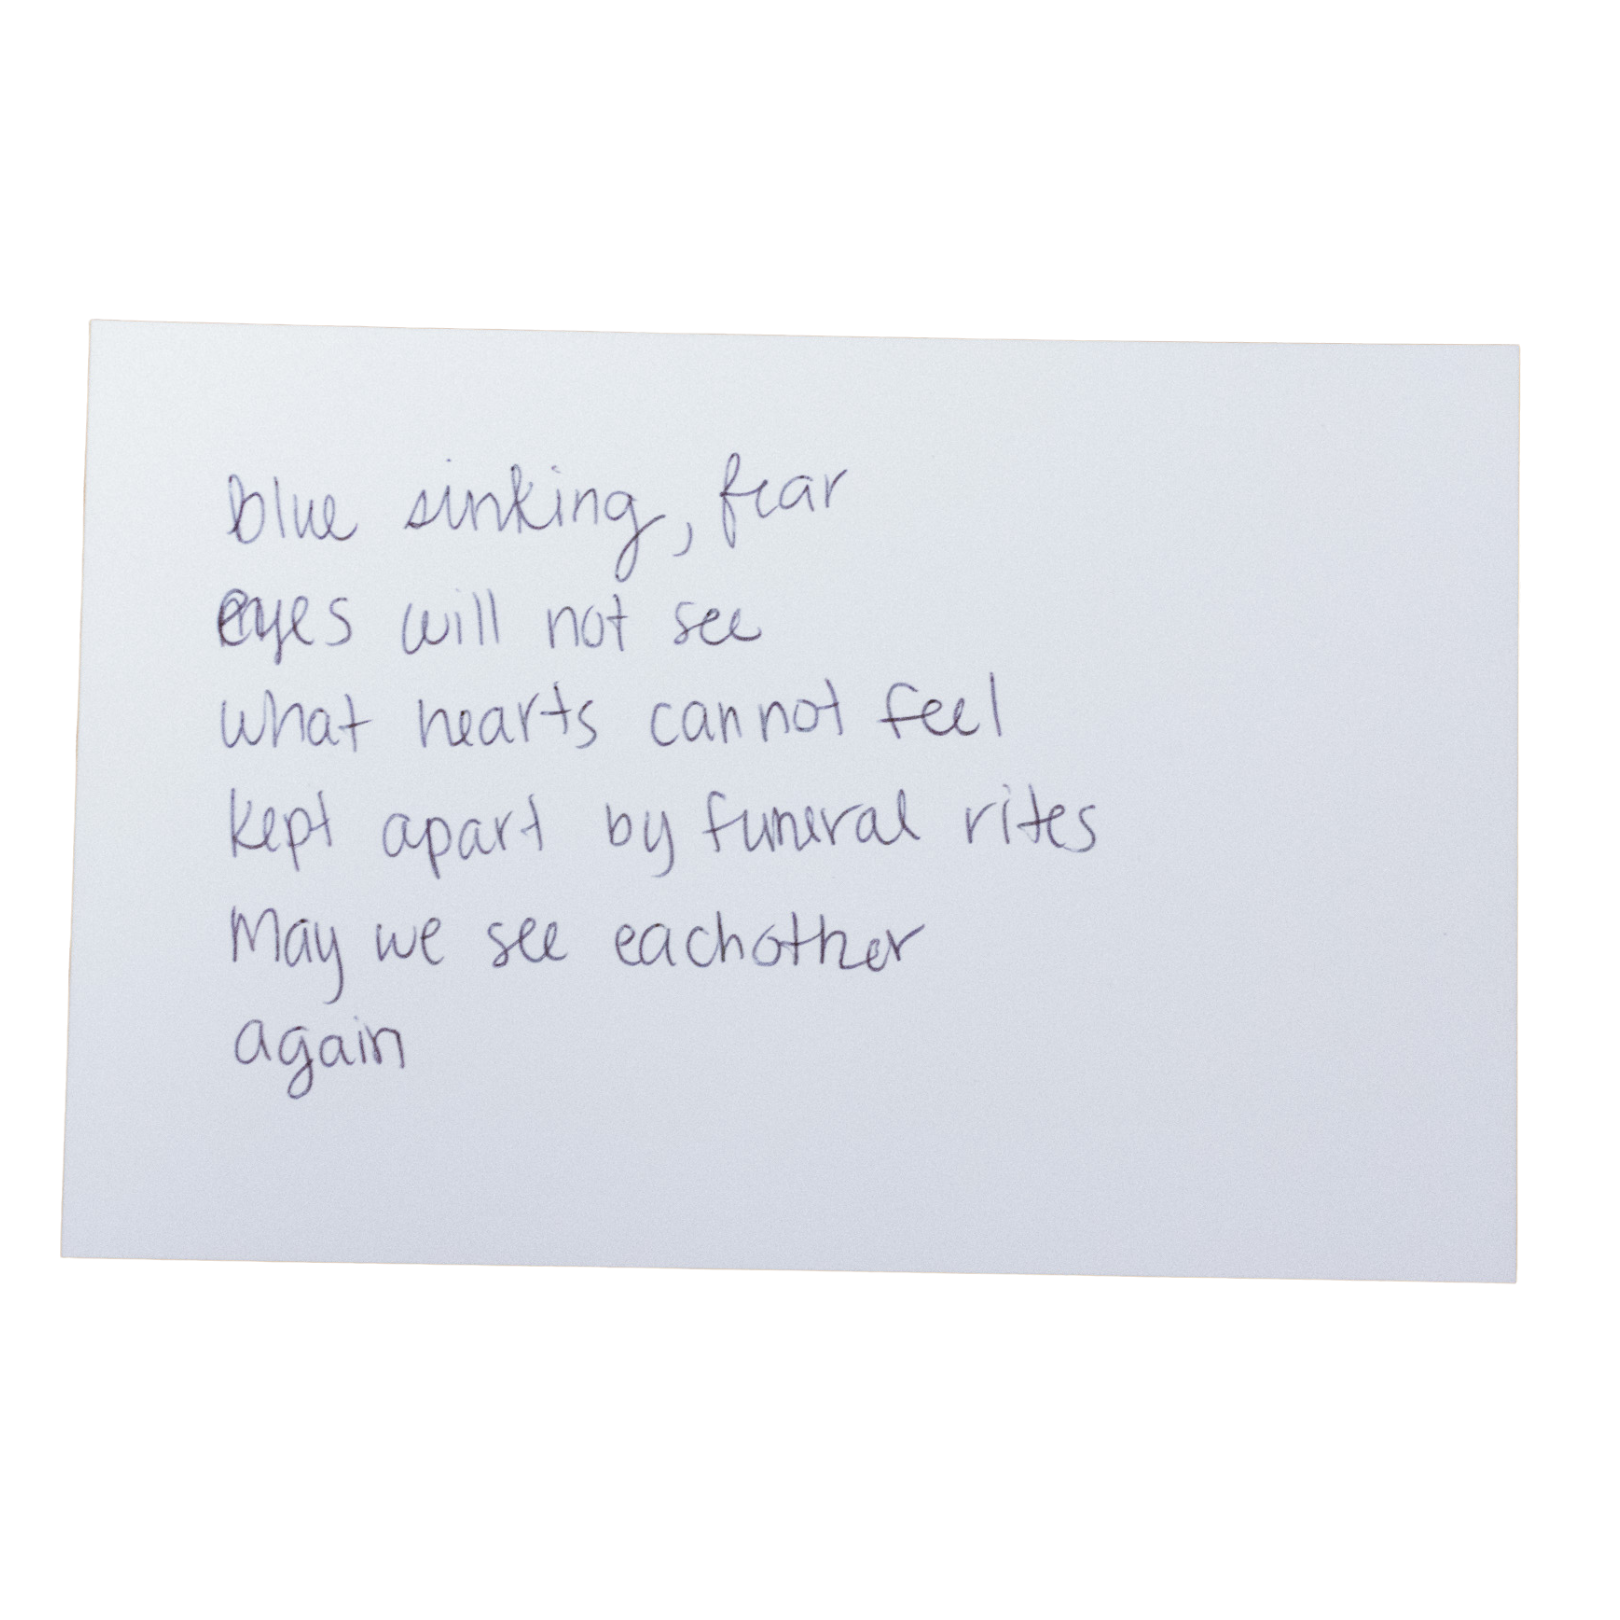 blue sinking, fear
eyes will not see
what hearts cannot feel
kept apart by funeral rites
May we see eachother
again